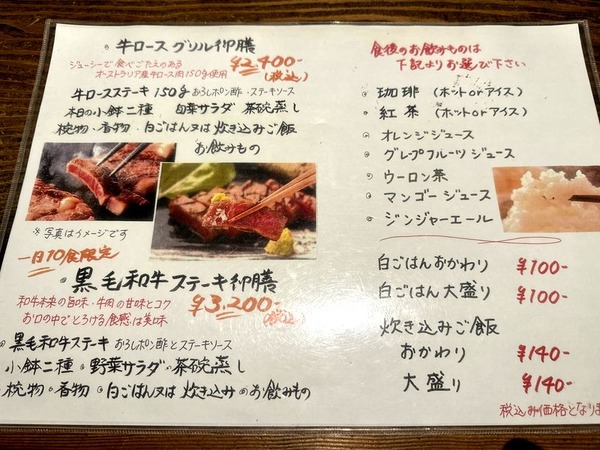 牛ロース グリル御膳
ジューシーで食べごたえのある
オーストラリア産牛ロース肉150g使用
¥2,400-
(税込)
牛ロースステーキ 150g おろしポン酢・ステーキソース
本日の小鉢二種 旬菜サラダ 茶碗蒸し
椀物・香物・白ごはん又は 炊き込みご飯
お飲みもの
※写真はイメージです
一日10食限定
黒毛和牛ステーキ御膳
和牛本来の旨味・牛肉の甘味とコク
お口の中でとろける食感は美味
¥3,200-
(税込)
黒毛和牛ステーキ おろしポン酢とステーキソース
小鉢二種・野菜サラダ・茶碗蒸し
椀物・香物・白ごはん又は 炊き込み・お飲みもの
食後のお飲みものは
下記よりお選び下さい
珈琲 (ホットorアイス)
紅茶 (ホットorアイス)
オレンジジュース
グレープフルーツジュース
ウーロン茶
マンゴージュース
ジンジャーエール
白ごはんおかわり ¥100-
白ごはん大盛り ¥100-
炊き込みご飯
おかわり ¥140-
大盛り ¥140-
税込み価格となりま